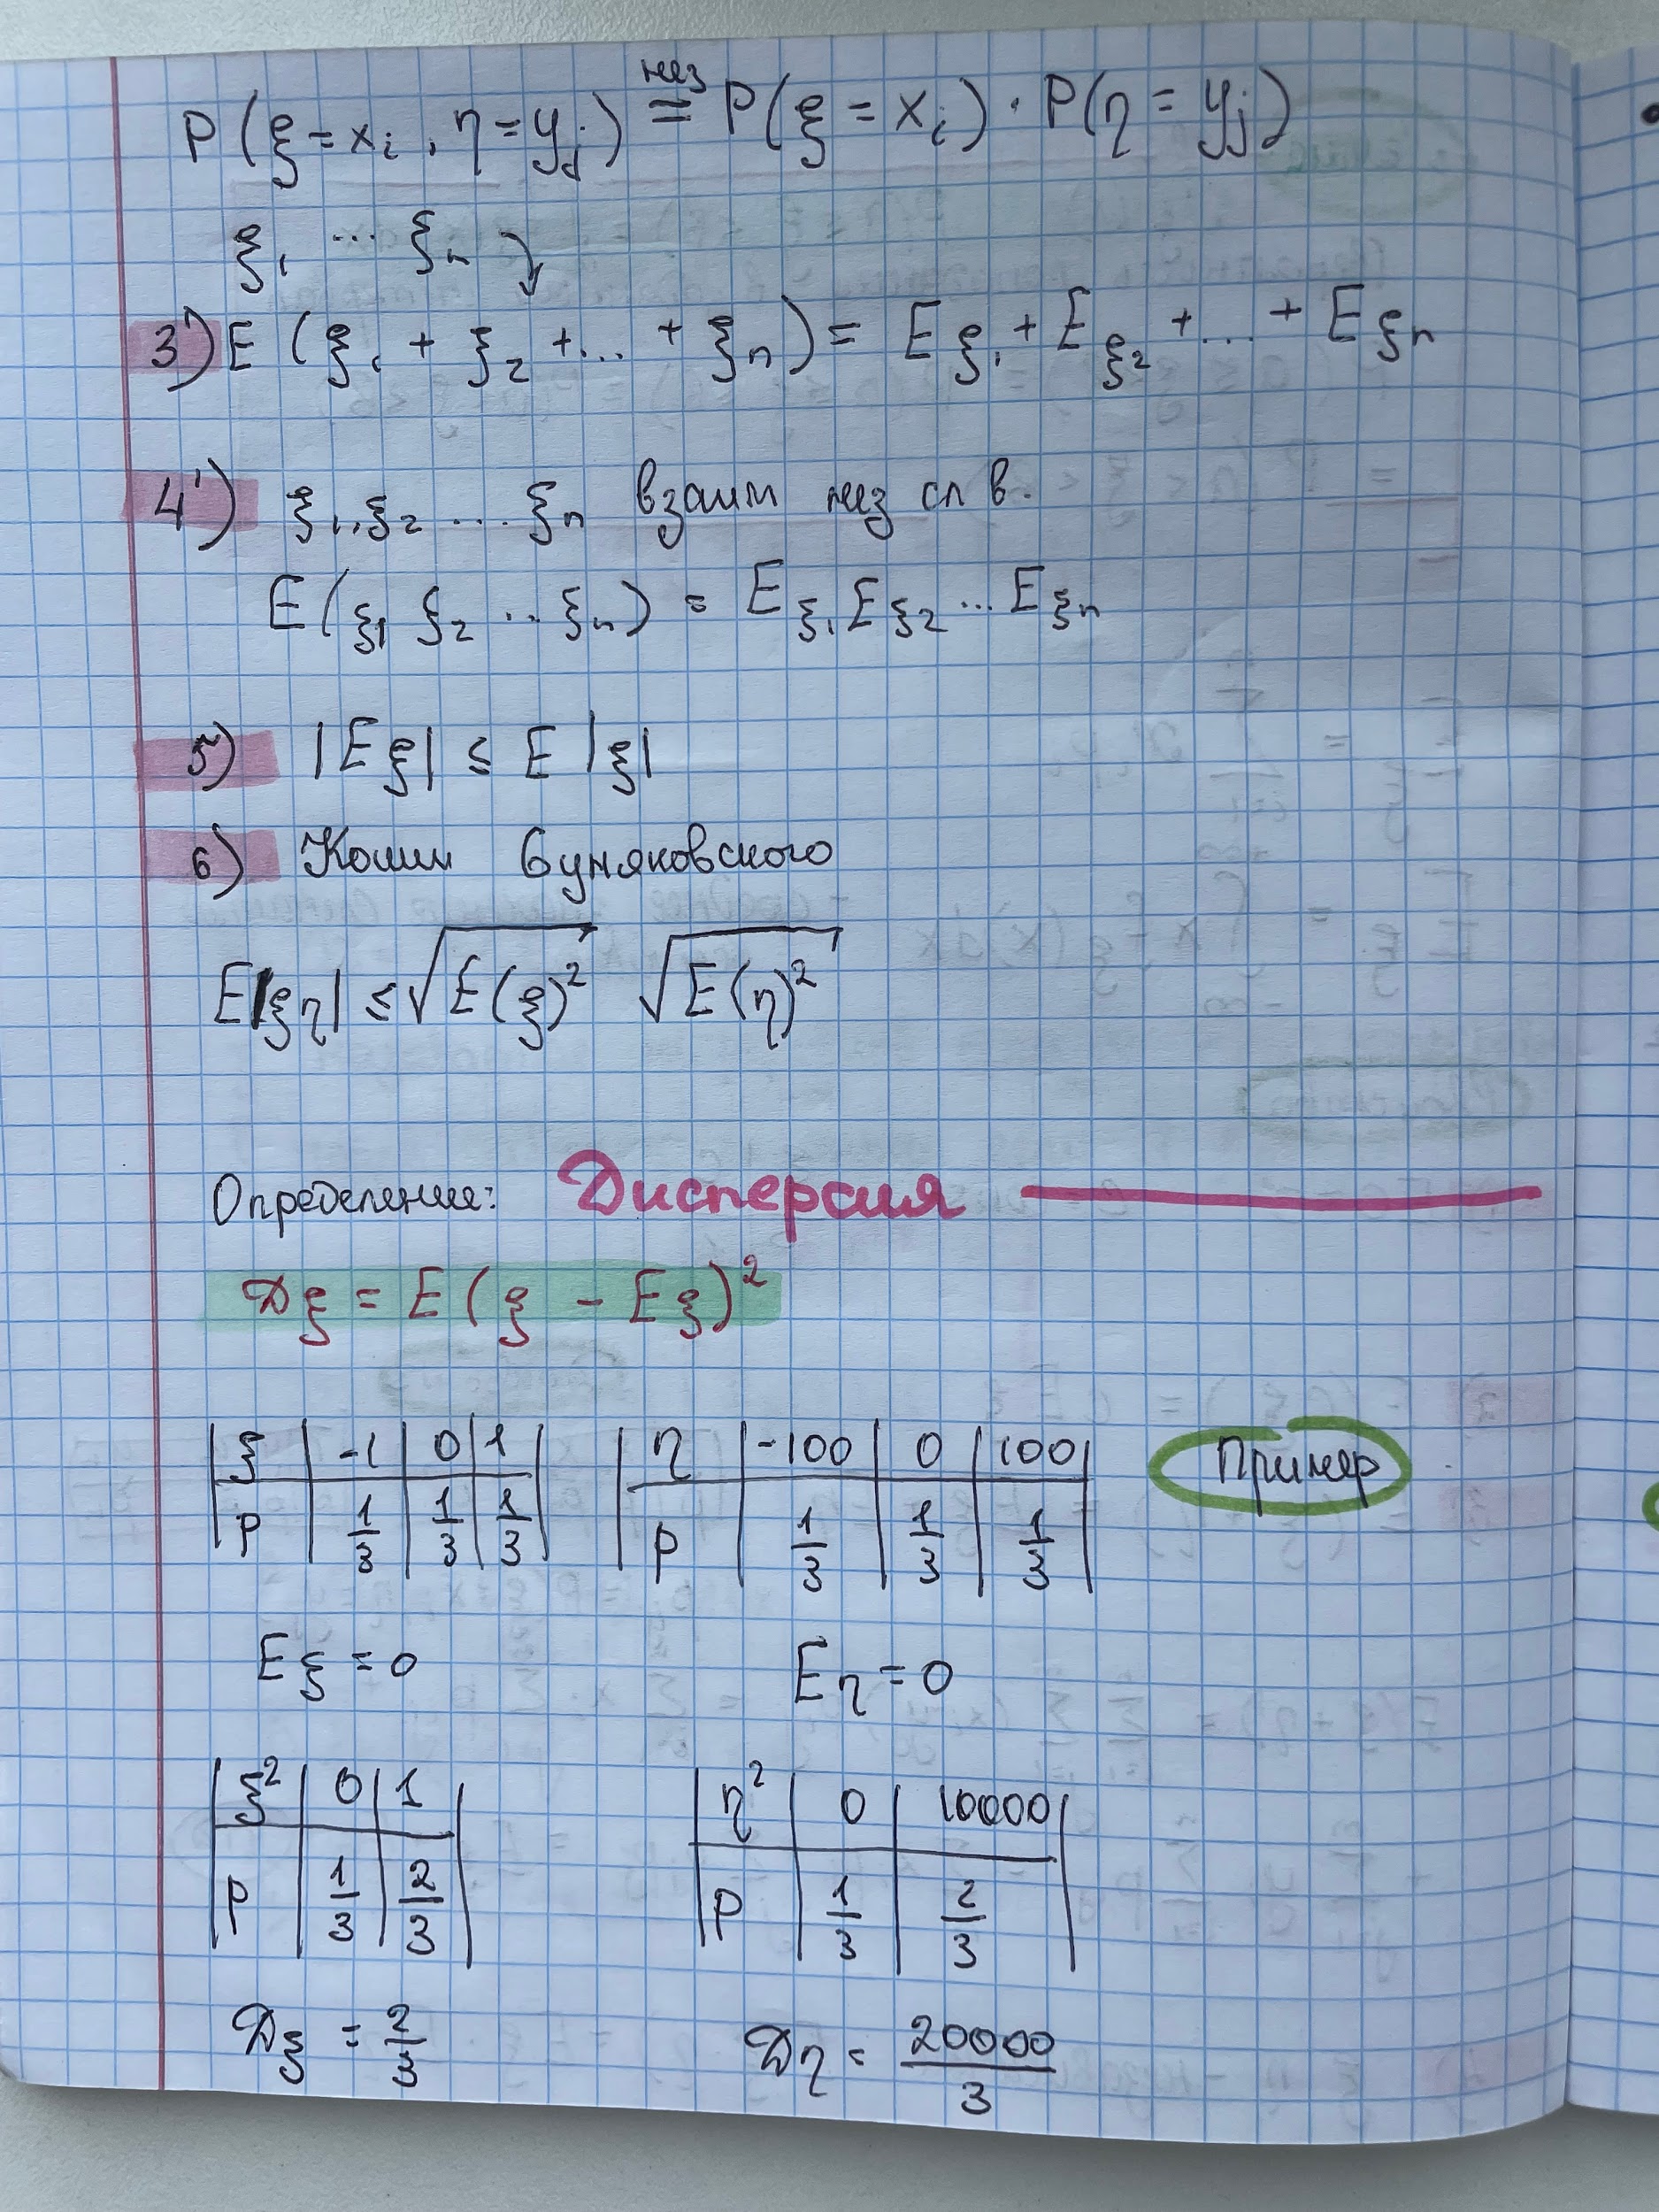 P(ξ = xᵢ, η = yⱼ) = P(ξ = xᵢ) · P(η = yⱼ)
нез
ξ₁ ... ξₙ
3') E (ξ₁ + ξ₂ + ... + ξₙ) = Eξ₁ + Eξ₂ + ... + Eξₙ
4') ξ₁, ξ₂ ... ξₙ взаим нез сл в.
E(ξ₁ ξ₂ ... ξₙ) = Eξ₁ Eξ₂ ... Eξₙ
5) |Eξ| ≤ E |ξ|
6) Коши Буняковского
E|ξη| ≤ √E(ξ)² √E(η)²
Определение: Дисперсия
Дξ = E(ξ - Eξ)²
ξ | -1 | 0 | 1 η | -100 | 0 | 100 Пример
P | 1/3 | 1/3 | 1/3 P | 1/3 | 1/3 | 1/3
Eξ = 0 Eη = 0
ξ² | 0 | 1 η² | 0 | 10000
P | 1/3 | 2/3 P | 1/3 | 2/3
Дξ = 2/3 Дη = 20000/3